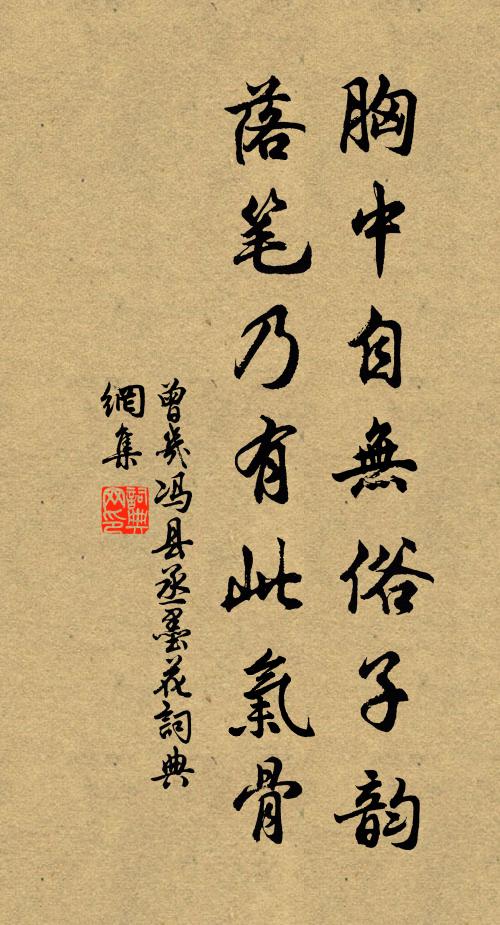 胸中自無俗子韵
落笔乃有此氣骨
曾幾冯县丞墨花詞典
網集
詞典
网印